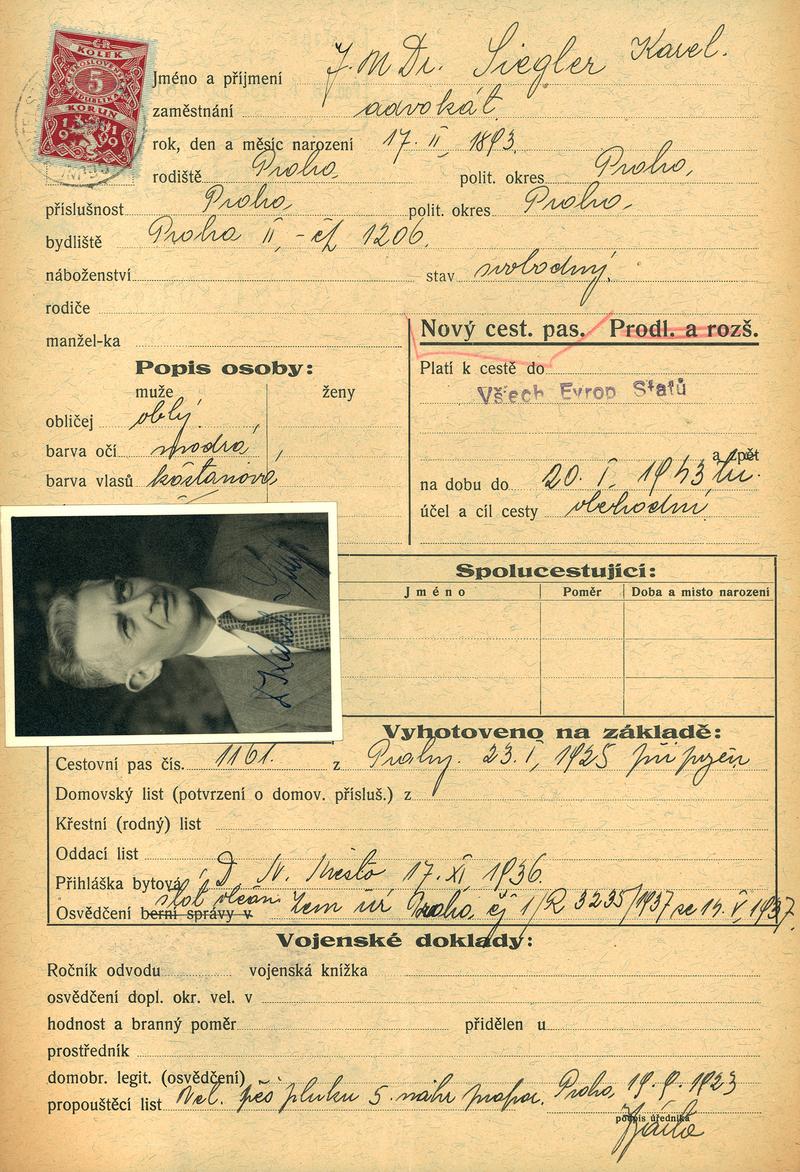 ČR
KOLEK
ČESKOSLOVENSKÁ
5
REPUBLIKA
KORUN
19 19
Jméno a příjmení JUDr. Siegler Karel.
zaměstnání advokát.
rok, den a měsíc narození 17. II, 1893.
rodiště Praha, polit. okres Praha,
příslušnost Praha, polit. okres Praha,
bydliště Praha II, - čp 1206.
náboženství stav svobodný.
rodiče
manžel-ka
Nový cest. pas. Prodl. a rozš.
Popis osoby:
muže ženy
obličej oblý,
barva očí modrá,
barva vlasů kaštanová
Platí k cestě do
Všech Evrop Států
a zpět
na dobu do 20. I. 1943
účel a cíl cesty obchodní
Spolucestující:
Jméno Poměr Doba a místo narození
Vyhotoveno na základě:
Cestovní pas čís. 1161. z Prahy. 23. I, 1925
Domovský list (potvrzení o domov. přísluš.) z
Křestní (rodný) list
Oddací list
Přihláška bytová D N. Město 17. XI, 1936.
stát občan.
Osvědčení berní správy v Zem úř Praha, čj 1/R 3235/1937 ze 14. V, 1937.
Vojenské doklady:
Ročník odvodu vojenská knížka
osvědčení dopl. okr. vel. v
hodnost a branný poměr přidělen u
prostředník
domobr. legit. (osvědčení)
propouštěcí list Vel. pěš pluku 5. náhr prapor. Praha, 19. 9. 1923
podpis úředníka